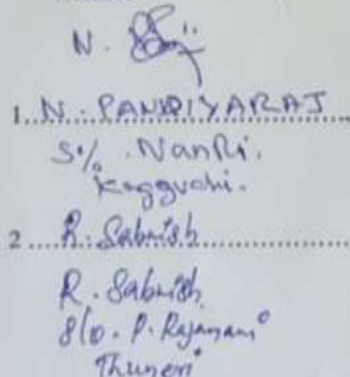 N.
1. N. PANDIYARAJ
S/o. NanRi.
Kagguchi.
2 R. Sabarish
R. Sabarish
S/o. P. Rajamani
Thuneri